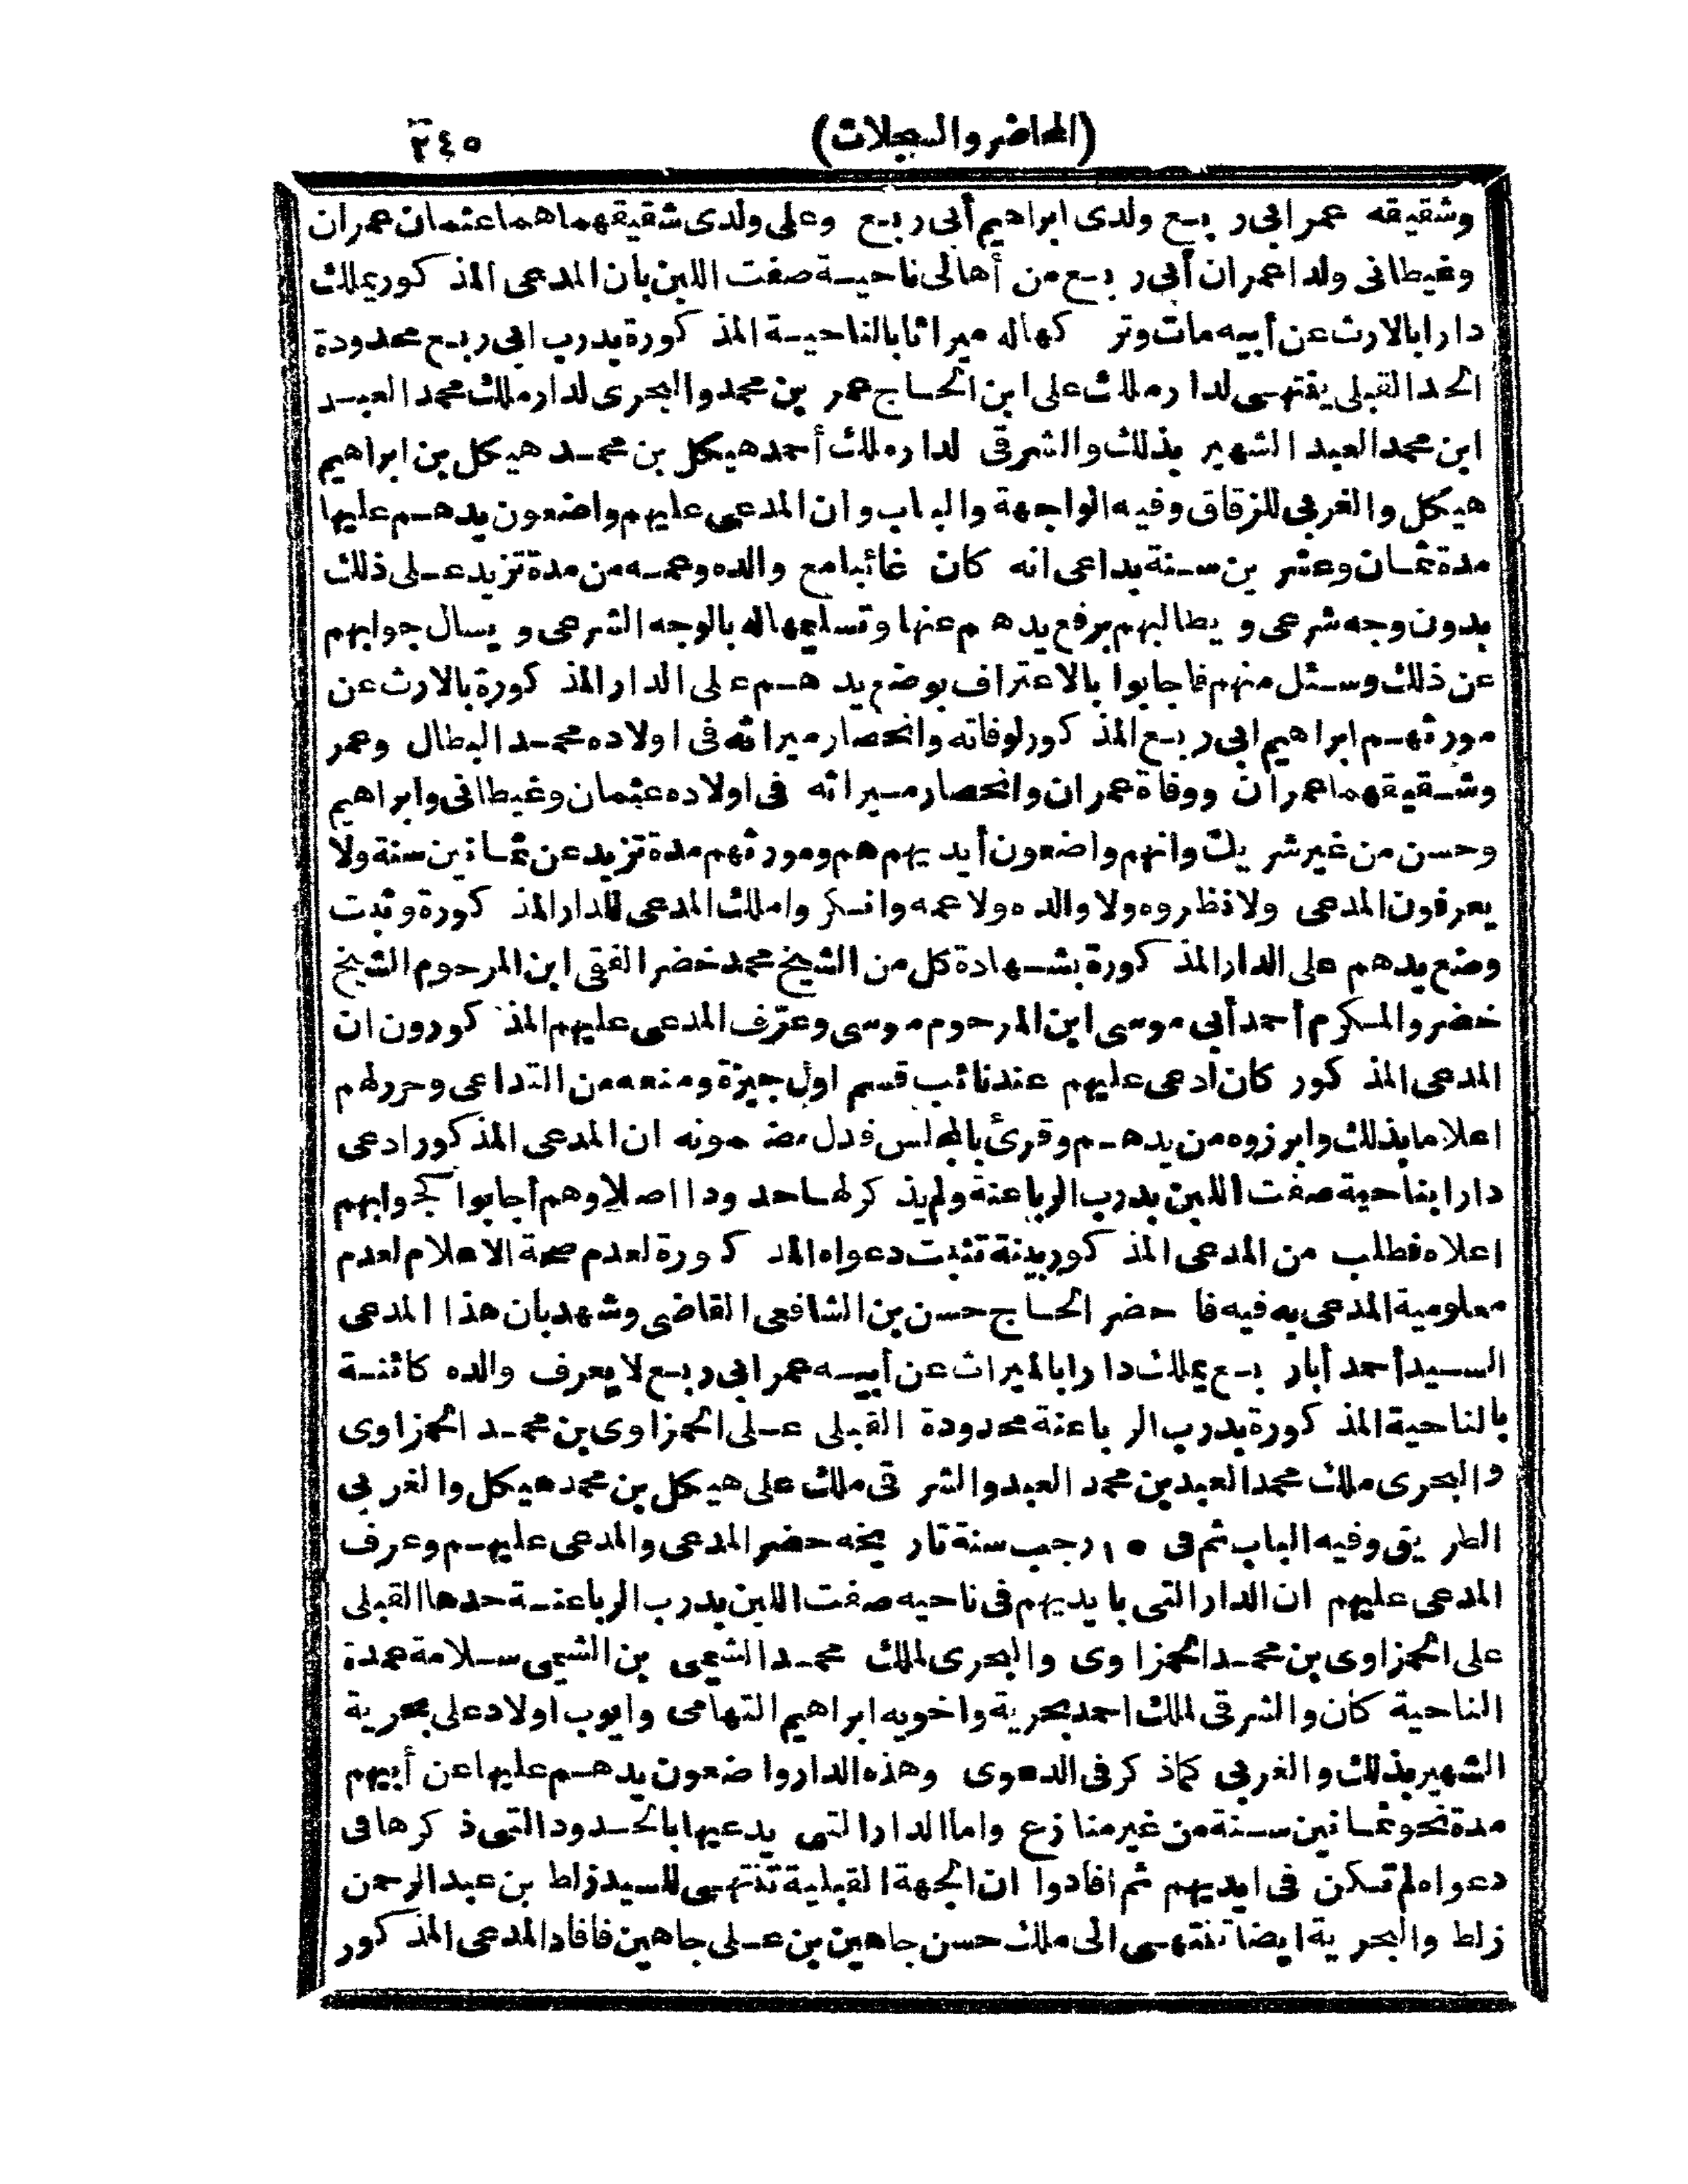 (المحاضر والسجلات) ٢٤٥
وشقيقه عمر ابى ربيع ولدى ابراهيم أبى ربيع وعلى ولدى شقيقهما هما عثمان عمران
وغيطانى ولدا عمران أبى ربيع من أهالى ناحية صفت اللبن بان المدعى المذكور يملك
دارا بالارث عن أبيه مات وتركها له ميراثا بالناحية المذكورة بدرب ابى ربيع محدودة
الحد القبلى ينتهى لدار ملك على ابن الحاج عمر بن محمد والبحرى لدار ملك محمد العبد
ابن محمد العبد الشهير بذلك والشرقى لدار ملك أحمد هيكل بن محمد هيكل بن ابراهيم
هيكل والغربى للزقاق وفيه الواجهة والباب وان المدعى عليهم واضعون يدهم عليها
مدة ثمان وعشرين سنة بداعى انه كان غائبا مع والده وعمه من مدة تزيد على ذلك
بدون وجه شرعى ويطالبهم برفع يدهم عنها وتسليمها له بالوجه الشرعى ويسال جوابهم
عن ذلك وسئل منهم فاجابوا بالاعتراف بوضع يدهم على الدار المذكورة بالارث عن
مورثهم ابراهيم ابى ربيع المذكور لوفاته وانحصار ميراثه فى اولاده محمد البطال وعمر
وشقيقهما عمران ووفاة عمران وانحصار ميراثه فى اولاده عثمان وغيطانى وابراهيم
وحسن من غير شريك وانهم واضعون أيديهم هم ومورثهم مدة تزيد عن ثمانين سنة ولا
يعرفون المدعى ولا نظروه ولا والده ولا عمه وانكروا ملك المدعى للدار المذكورة وثبت
وضع يدهم على الدار المذكورة بشهادة كل من الشيخ محمد خضر الفقى ابن المرحوم الشيخ
خضر والمكرم أحمد أبى موسى ابن المرحوم موسى وعرّف المدعى عليهم المذكورون ان
المدعى المذكور كان أدعى عليهم عند نائب قسم اول جيزة ومنعه من التداعى وحرر لهم
اعلاما بذلك وابرزوه من يدهم وقرئ بالمجلس فدل مضمونه ان المدعى المذكور ادعى
دارا بناحية صفت اللبن بدرب الرباعنة ولم يذكر لها حدودا اصلا وهم أجابوا كجوابهم
اعلاه فطلب من المدعى المذكور بينة تثبت دعواه المذكورة لعدم صحة الاعلام لعدم
معلومية المدعى به فيه فاحضر الحاج حسن بن الشافعى القاضى وشهد بان هذا المدعى
السيد أحمد أبا ربيع يملك دارا بالميراث عن أبيه عمر ابى ربيع لا يعرف والده كائنة
بالناحية المذكورة بدرب الرباعنة محدودة القبلى على الحمزاوى بن محمد الحمزاوى
والبحرى ملك محمد العبد بن محمد العبد والشرقى ملك على هيكل بن محمد هيكل والغربى
الطريق وفيه الباب ثم فى ١٥ رجب سنة تاريخه حضر المدعى والمدعى عليهم وعرف
المدعى عليهم ان الدار التى بايديهم فى ناحيه صفت اللبن بدرب الرباعنة حدها القبلى
على الحمزاوى بن محمد الحمزاوى والبحرى لملك محمد الشيمى بن الشيمى سلامة عمدة
الناحية كان والشرقى لملك احمد بحرية واخويه ابراهيم التهامى وايوب اولاد على بحرية
الشهير بذلك والغربى كماذكر فى الدعوى وهذه الدار واضعون يدهم عليها عن أبيهم
مدة نحو ثمانين سنة من غير منازع واما الدار التى يدعيها بالحدود التى ذكرها فى
دعواه لم تكن فى ايديهم ثم افادوا ان الجهة القبلية تنتهى للسيد زلط بن عبد الرحمن
زلط والبحرية ايضا تنتهى الى ملك حسن جاهين بن على جاهين فافاد المدعى المذكور